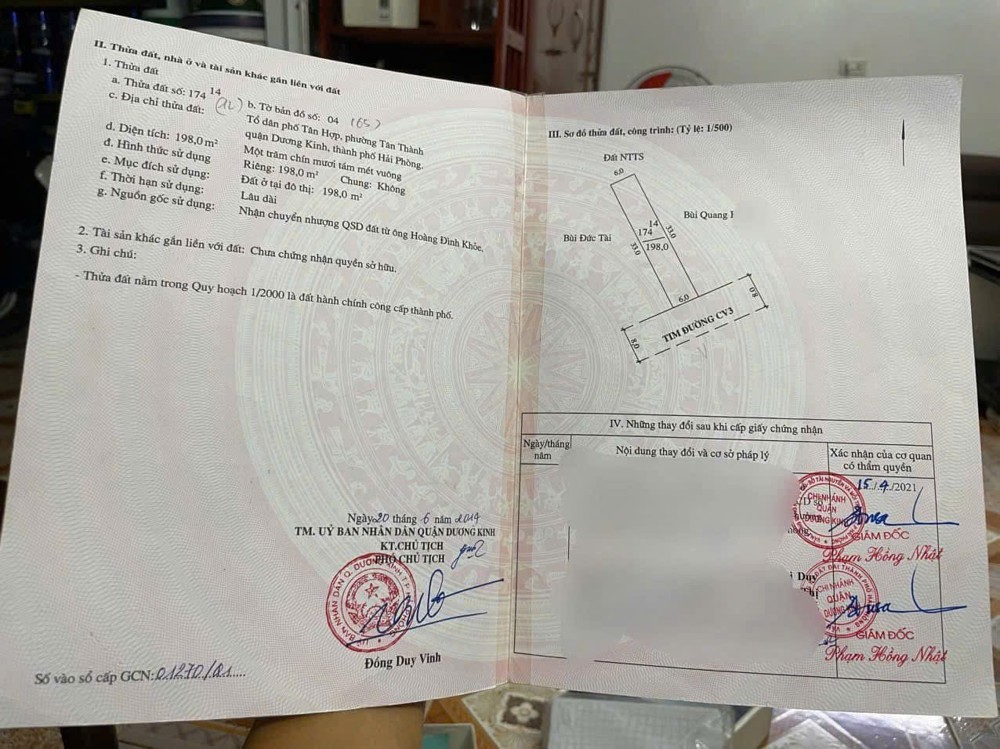 II. Thửa đất, nhà ở và tài sản khác gắn liền với đất
1. Thửa đất
a. Thửa đất số: 174 14
b. Tờ bản đồ số: 04 (65)
c. Địa chỉ thửa đất: Tổ dân phố Tân Hợp, phường Tân Thành
quận Dương Kinh, thành phố Hải Phòng.
d. Diện tích: 198,0 m²
Một trăm chín mươi tám mét vuông
đ. Hình thức sử dụng
Riêng: 198,0 m² Chung: Không
e. Mục đích sử dụng:
Đất ở tại đô thị: 198,0 m²
f. Thời hạn sử dụng:
Lâu dài
g. Nguồn gốc sử dụng:
Nhận chuyển nhượng QSD đất từ ông Hoàng Đình Khỏe.
2. Tài sản khác gắn liền với đất: Chưa chứng nhận quyền sở hữu.
3. Ghi chú:
- Thửa đất nằm trong Quy hoạch 1/2000 là đất hành chính công cấp thành phố.
Ngày 20 tháng 6 năm 2019
TM. UỶ BAN NHÂN DÂN QUẬN DƯƠNG KINH
KT.CHỦ TỊCH
PHÓ CHỦ TỊCH
Đồng Duy Vinh
Số vào sổ cấp GCN: 01270/01
III. Sơ đồ thửa đất, công trình: (Tỷ lệ: 1/500)
Đất NTTS
6,0
Bùi Quang
Bùi Đức Tài
14
174
198,0
33,0
33,0
6,0
8,0
TIM ĐƯỜNG CV3
8,0
IV. Những thay đổi sau khi cấp giấy chứng nhận
Ngày/tháng
năm
Nội dung thay đổi và cơ sở pháp lý
Xác nhận của cơ quan
có thẩm quyền
15/4/2021
CHI NHÁNH
QUẬN
DƯƠNG KINH
GIÁM ĐỐC
Phạm Hồng Nhật
Duy
CHI NHÁNH
QUẬN
DƯƠNG
GIÁM ĐỐC
Phạm Hồng Nhật